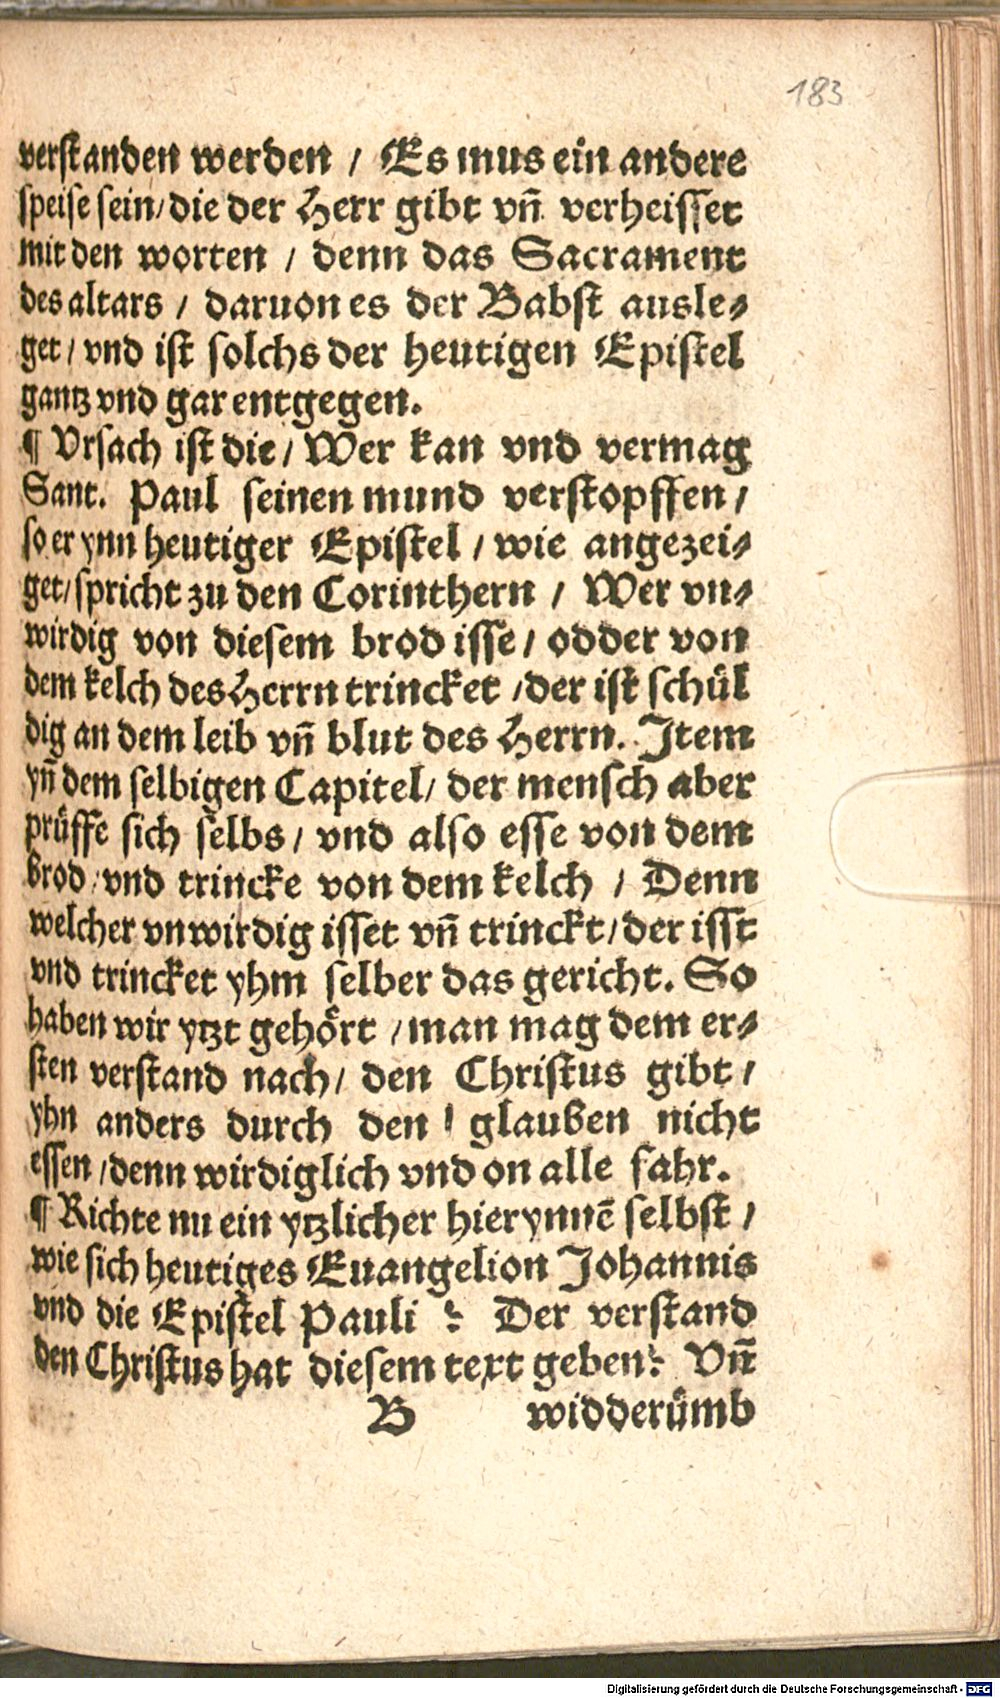 183
verstanden werden / Es mus ein andere
speise sein / die der Herr gibt vñ verheisset
mit den worten / denn das Sacrament
des altars / daruon es der Babst ausle⸗
get / vnd ist solchs der heutigen Epistel
gantz vnd gar entgegen.
¶ Vrsach ist die / Wer kan vnd vermag
Sant. Paul seinen mund verstopffen /
so er ynn heutiger Epistel / wie angezei⸗
get / spricht zu den Corinthern / Wer vn⸗
wirdig von diesem brod isse / odder von
dem kelch des Herrn trincket / der ist schuͤl
dig an dem leib vñ blut des Herrn. Item
yñ dem selbigen Capitel / der mensch aber
pruͤffe sich selbs / vnd also esse von dem
brod / vnd trincke von dem kelch / Denn
welcher vnwirdig isset vñ trinckt / der isst
vnd trincket yhm selber das gericht. So
haben wir ytzt gehoͤrt / man mag dem er⸗
sten verstand nach / den Christus gibt /
yhn anders durch den glauben nicht
essen / denn wirdiglich vnd on alle fahr.
¶ Richte nu ein ytzlicher hierynnē selbst /
wie sich heutiges Euangelion Johannis
vnd die Epistel Pauli ? Der verstand
den Christus hat diesem text geben? Vñ
B widderuͤmb
Digitalisierung gefördert durch die Deutsche Forschungsgemeinschaft - DFG